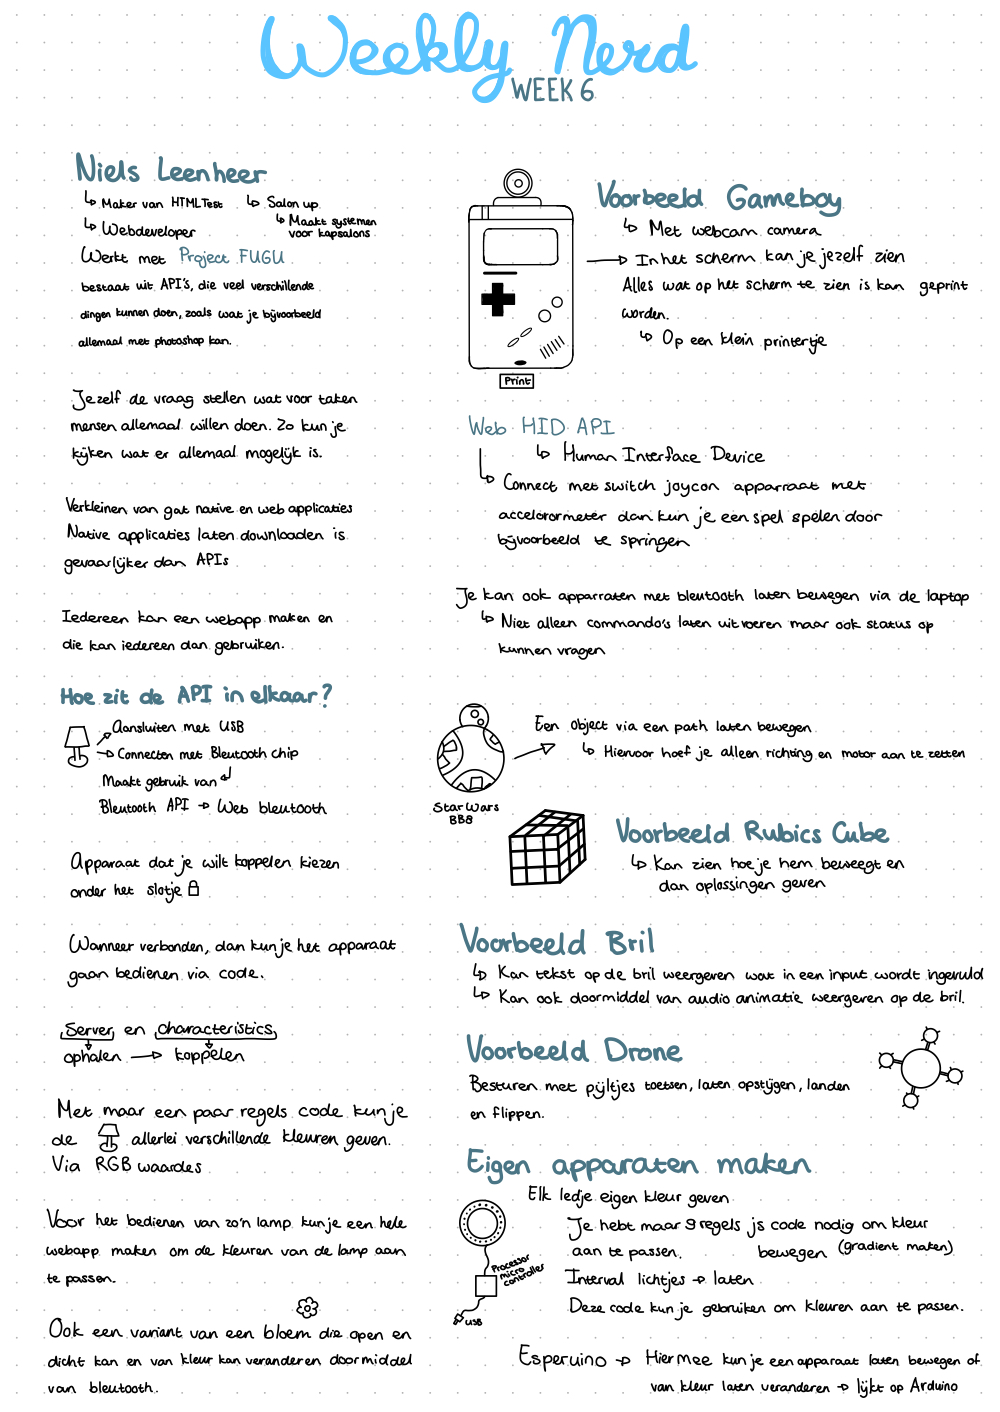 Weekly Nerd
WEEK 6
Niels Leenheer
↳ Maker van HTMLTest ↳ Salon up
↳ Webdeveloper ↳ Maakt systemen
voor kapsalons.
Werkt met Project FUGU
bestaat uit API's, die veel verschillende
dingen kunnen doen, zoals wat je bijvoorbeeld
allemaal met photoshop kan.
Jezelf de vraag stellen wat voor taken
mensen allemaal willen doen. Zo kun je
kijken wat er allemaal mogelijk is.
Verkleinen van gat native en web applicaties
Native applicaties laten downloaden is
gevaarlijker dan APIs
Iedereen kan een webapp maken en
die kan iedereen dan gebruiken.
Hoe zit de API in elkaar?
Aansluiten met USB
Connecten met Bleutooth chip
Maakt gebruik van
Bleutooth API → Web bleutooth
Apparaat dat je wilt koppelen kiezen
onder het slotje
Wanneer verbonden, dan kun je het apparaat
gaan bedienen via code.
Server en characteristics
ophalen → koppelen
Met maar een paar regels code kun je
de allerlei verschillende kleuren geven.
Via RGB waardes
Voor het bedienen van zo'n lamp kun je een hele
webapp maken om de kleuren van de lamp aan
te passen.
Ook een variant van een bloem die open en
dicht kan en van kleur kan veranderen door middel
van bleutooth.
Print
Voorbeeld Gameboy
↳ Met webcam camera
→ In het scherm kan je jezelf zien
Alles wat op het scherm te zien is kan geprint
worden.
↳ Op een klein printertje
Web HID API
↳ Human Interface Device
↳ Connect met switch joycon apparraat met
accelorormeter dan kun je een spel spelen door
bijvoorbeeld te springen
Je kan ook apparraten met bleutooth laten bewegen via de laptop
↳ Niet alleen commando's laten uitvoeren maar ook status op
kunnen vragen
Een object via een path laten bewegen
↳ Hiervoor hoef je alleen richting en motor aan te zetten
Star Wars
BB8
Voorbeeld Rubics Cube
↳ Kan zien hoe je hem beweegt en
dan oplossingen geven
Voorbeeld Bril
↳ Kan tekst op de bril weergeven wat in een input wordt ingevuld
↳ Kan ook doormiddel van audio animatie weergeven op de bril.
Voorbeeld Drone
Besturen met pijltjes toetsen, laten opstijgen, landen
en flippen.
Eigen apparaten maken
Elk ledje eigen kleur geven
Je hebt maar 9 regels js code nodig om kleur
aan te passen. bewegen (gradient maken)
Processor
micro
controller
Interval lichtjes → laten
USB
Deze code kun je gebruiken om kleuren aan te passen.
Esperuino → Hiermee kun je een apparaat laten bewegen of
van kleur laten veranderen → lijkt op Arduino